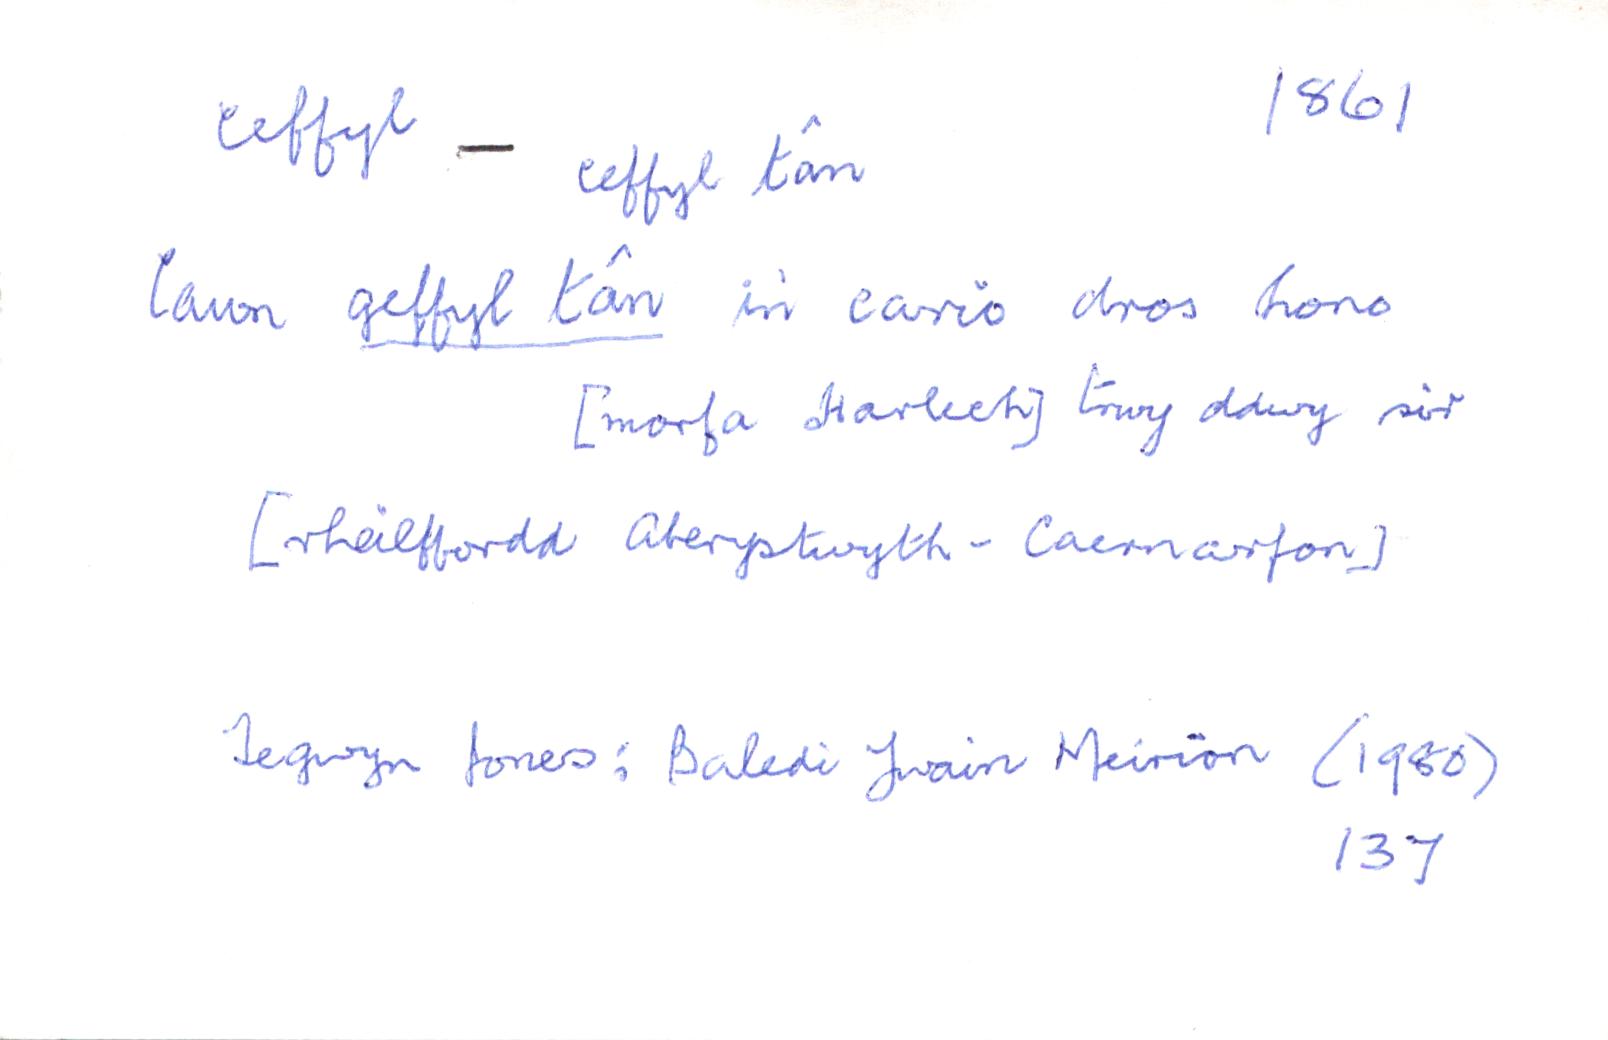 ceffyl — ceffyl tân 1861
Cawn geffyl tân i'n cario dros hono
[morfa Harlech] trwy ddwy sir
[rheilffordd Aberystwyth - Caernarfon]
Tegwyn Jones: Baledi Ywain Meirion (1980)
137